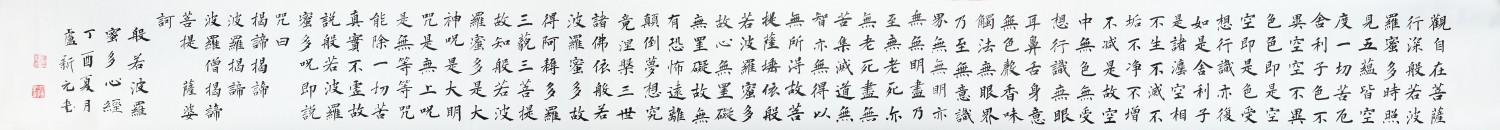 觀自在菩薩
行深般若波
羅蜜多時照
見五蘊皆空
度一切苦厄
舍利子色不
異空空不異
色色即是空
空即是色受
想行識亦復
如是舍利子
是諸法空相
不生不滅不
垢不淨不增
不減是故空
中無色無受
想行識無眼
耳鼻舌身意
無色聲香味
觸法無眼界
乃至無意識
界無無明亦
無無明盡乃
至無老死亦
無老死盡無
苦集滅道無
智亦無得以
無所得故菩
提薩埵依般
若波羅蜜多
故心無罣礙
無罣礙故無
有恐怖遠離
顛倒夢想究
竟涅槃三世
諸佛依般若
波羅蜜多故
得阿耨多羅
三藐三菩提
故知般若波
羅蜜多是大
神咒是大明
咒是無上咒
是無等等咒
能除一切苦
真實不虛故
說般若波羅
蜜多咒即說
咒曰
揭諦揭諦
波羅揭諦
波羅僧揭諦
菩提薩婆
訶
般若波羅
蜜多心經
丁酉夏月
盧新元书